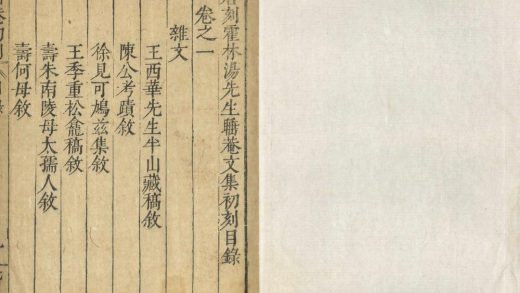 刻霍林湯先生睡菴文集初刻目錄
卷之一
雜文
王西華先生半山藏稿敘
陳公考蹟敘
徐見可鳩茲集敘
王季重松龕稿敘
壽朱南陵母太孺人敘
壽何母敘